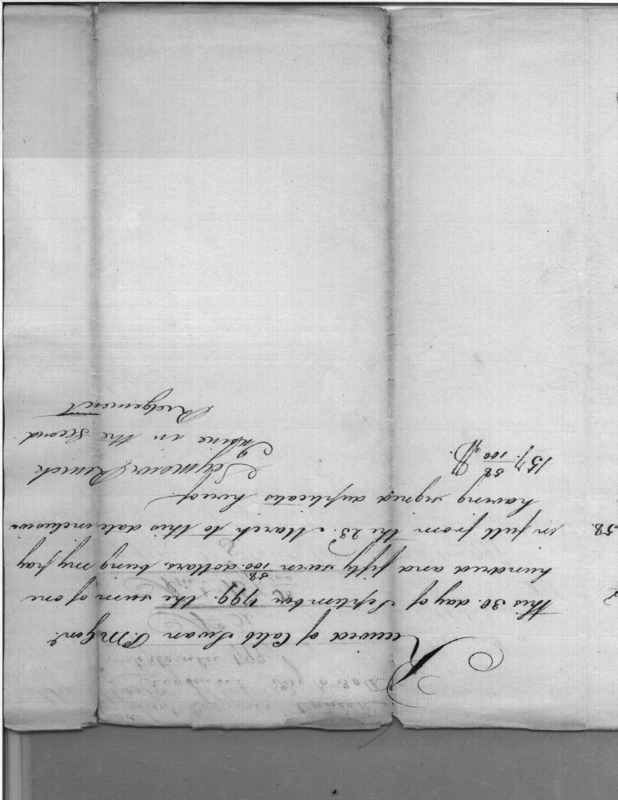 Received of Caleb Swan P.M.Genl
this 30. day of September 1799. the sum of one
hundred and fifty seven 58/100 dollars. being my pay
in full from the 23d March to this date inclusive
having signed duplicates hereof
157. 58/100 D.
Seymour Renick
Ensign in the Second
Regement
58.